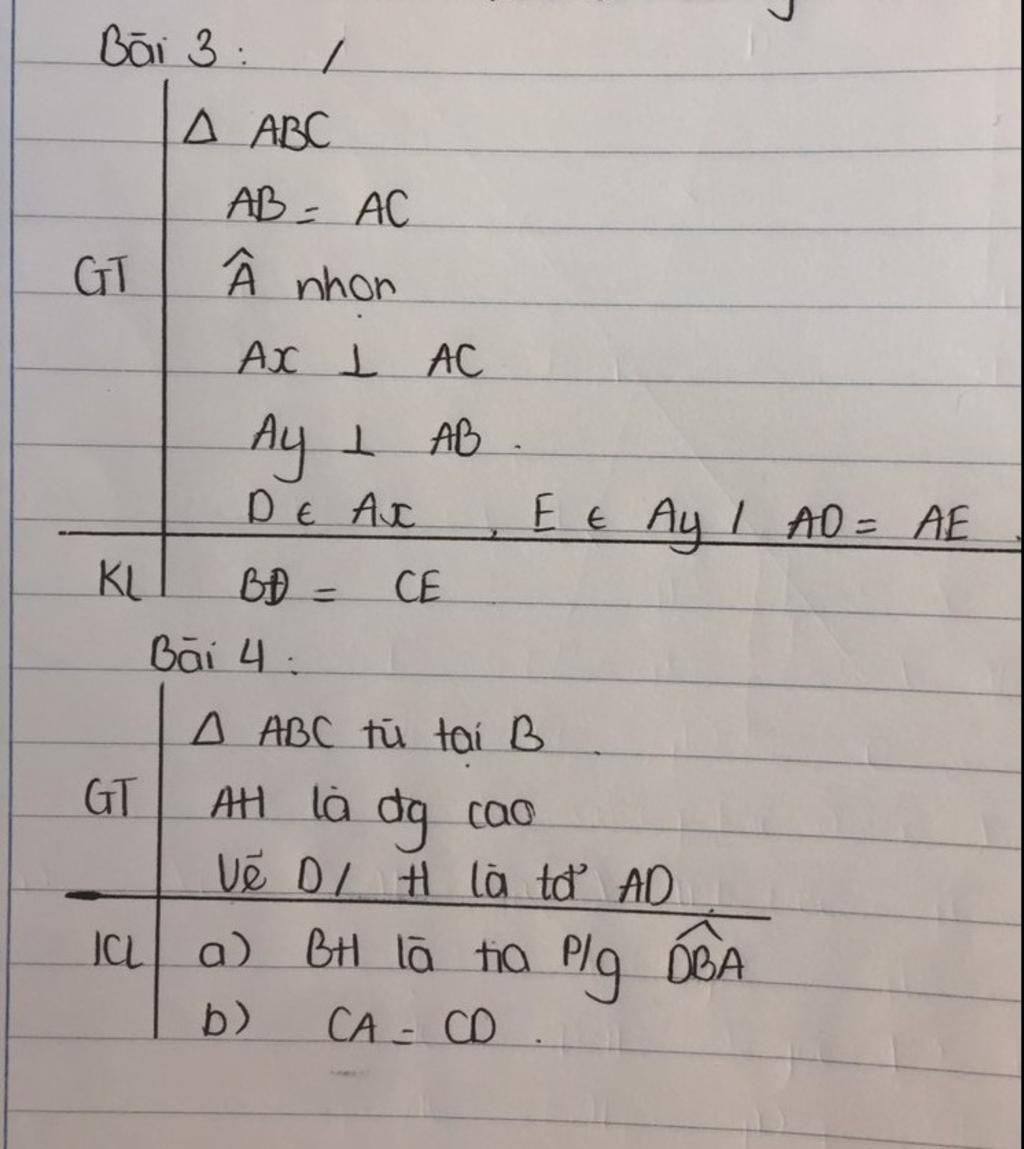 Bài 3: /
Δ ABC
AB = AC
GT Â nhọn
Ax ⊥ AC
Ay ⊥ AB.
D ∈ Ax, E ∈ Ay / AD = AE.
KL BĐ = CE
Bài 4:
Δ ABC tù tại B.
GT AH là đg cao
Vẽ D / H là tđ' AD.
KL a) BH là tia P/g \widehat{DBA}
b) CA = CD.